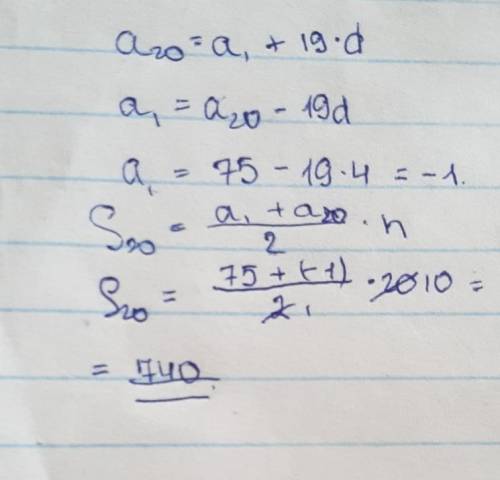 a₂₀ = a₁ + 19·d
a₁ = a₂₀ - 19d
a₁ = 75 - 19·4 = -1.
S₂₀ = (a₁ + a₂₀)/2 · n
S₂₀ = (75 + (-1))/2̶ 1 · 2̶0̶ 10 =
= 740